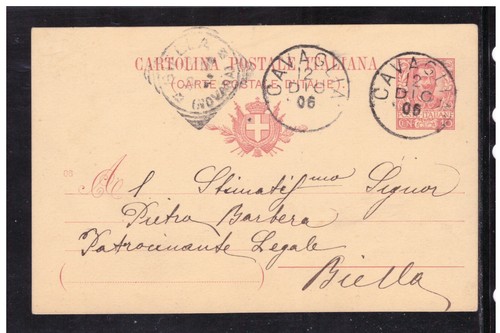 CARTOLINA POSTALE ITALIANA
(CARTE POSTALE D'ITALIE)
BIELLA
(NOVARA)
CAVAGLIÀ
12
DIC
06
CAVAGLIÀ
12
DIC
06
Al Stimatissmo Signor
Pietro Barbera
Patrocinante Legale
Biella